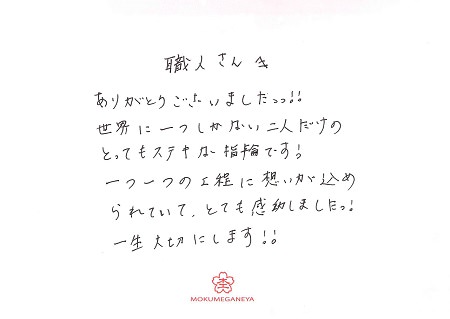 職人さんへ
ありがとうございましたっっ!!
世界に一つしかない二人だけの
とってもステキな指輪です!
一つ一つの工程に想いが込め
られていて、とても感動しましたっ!
一生大切にします!!
MOKUMEGANEYA